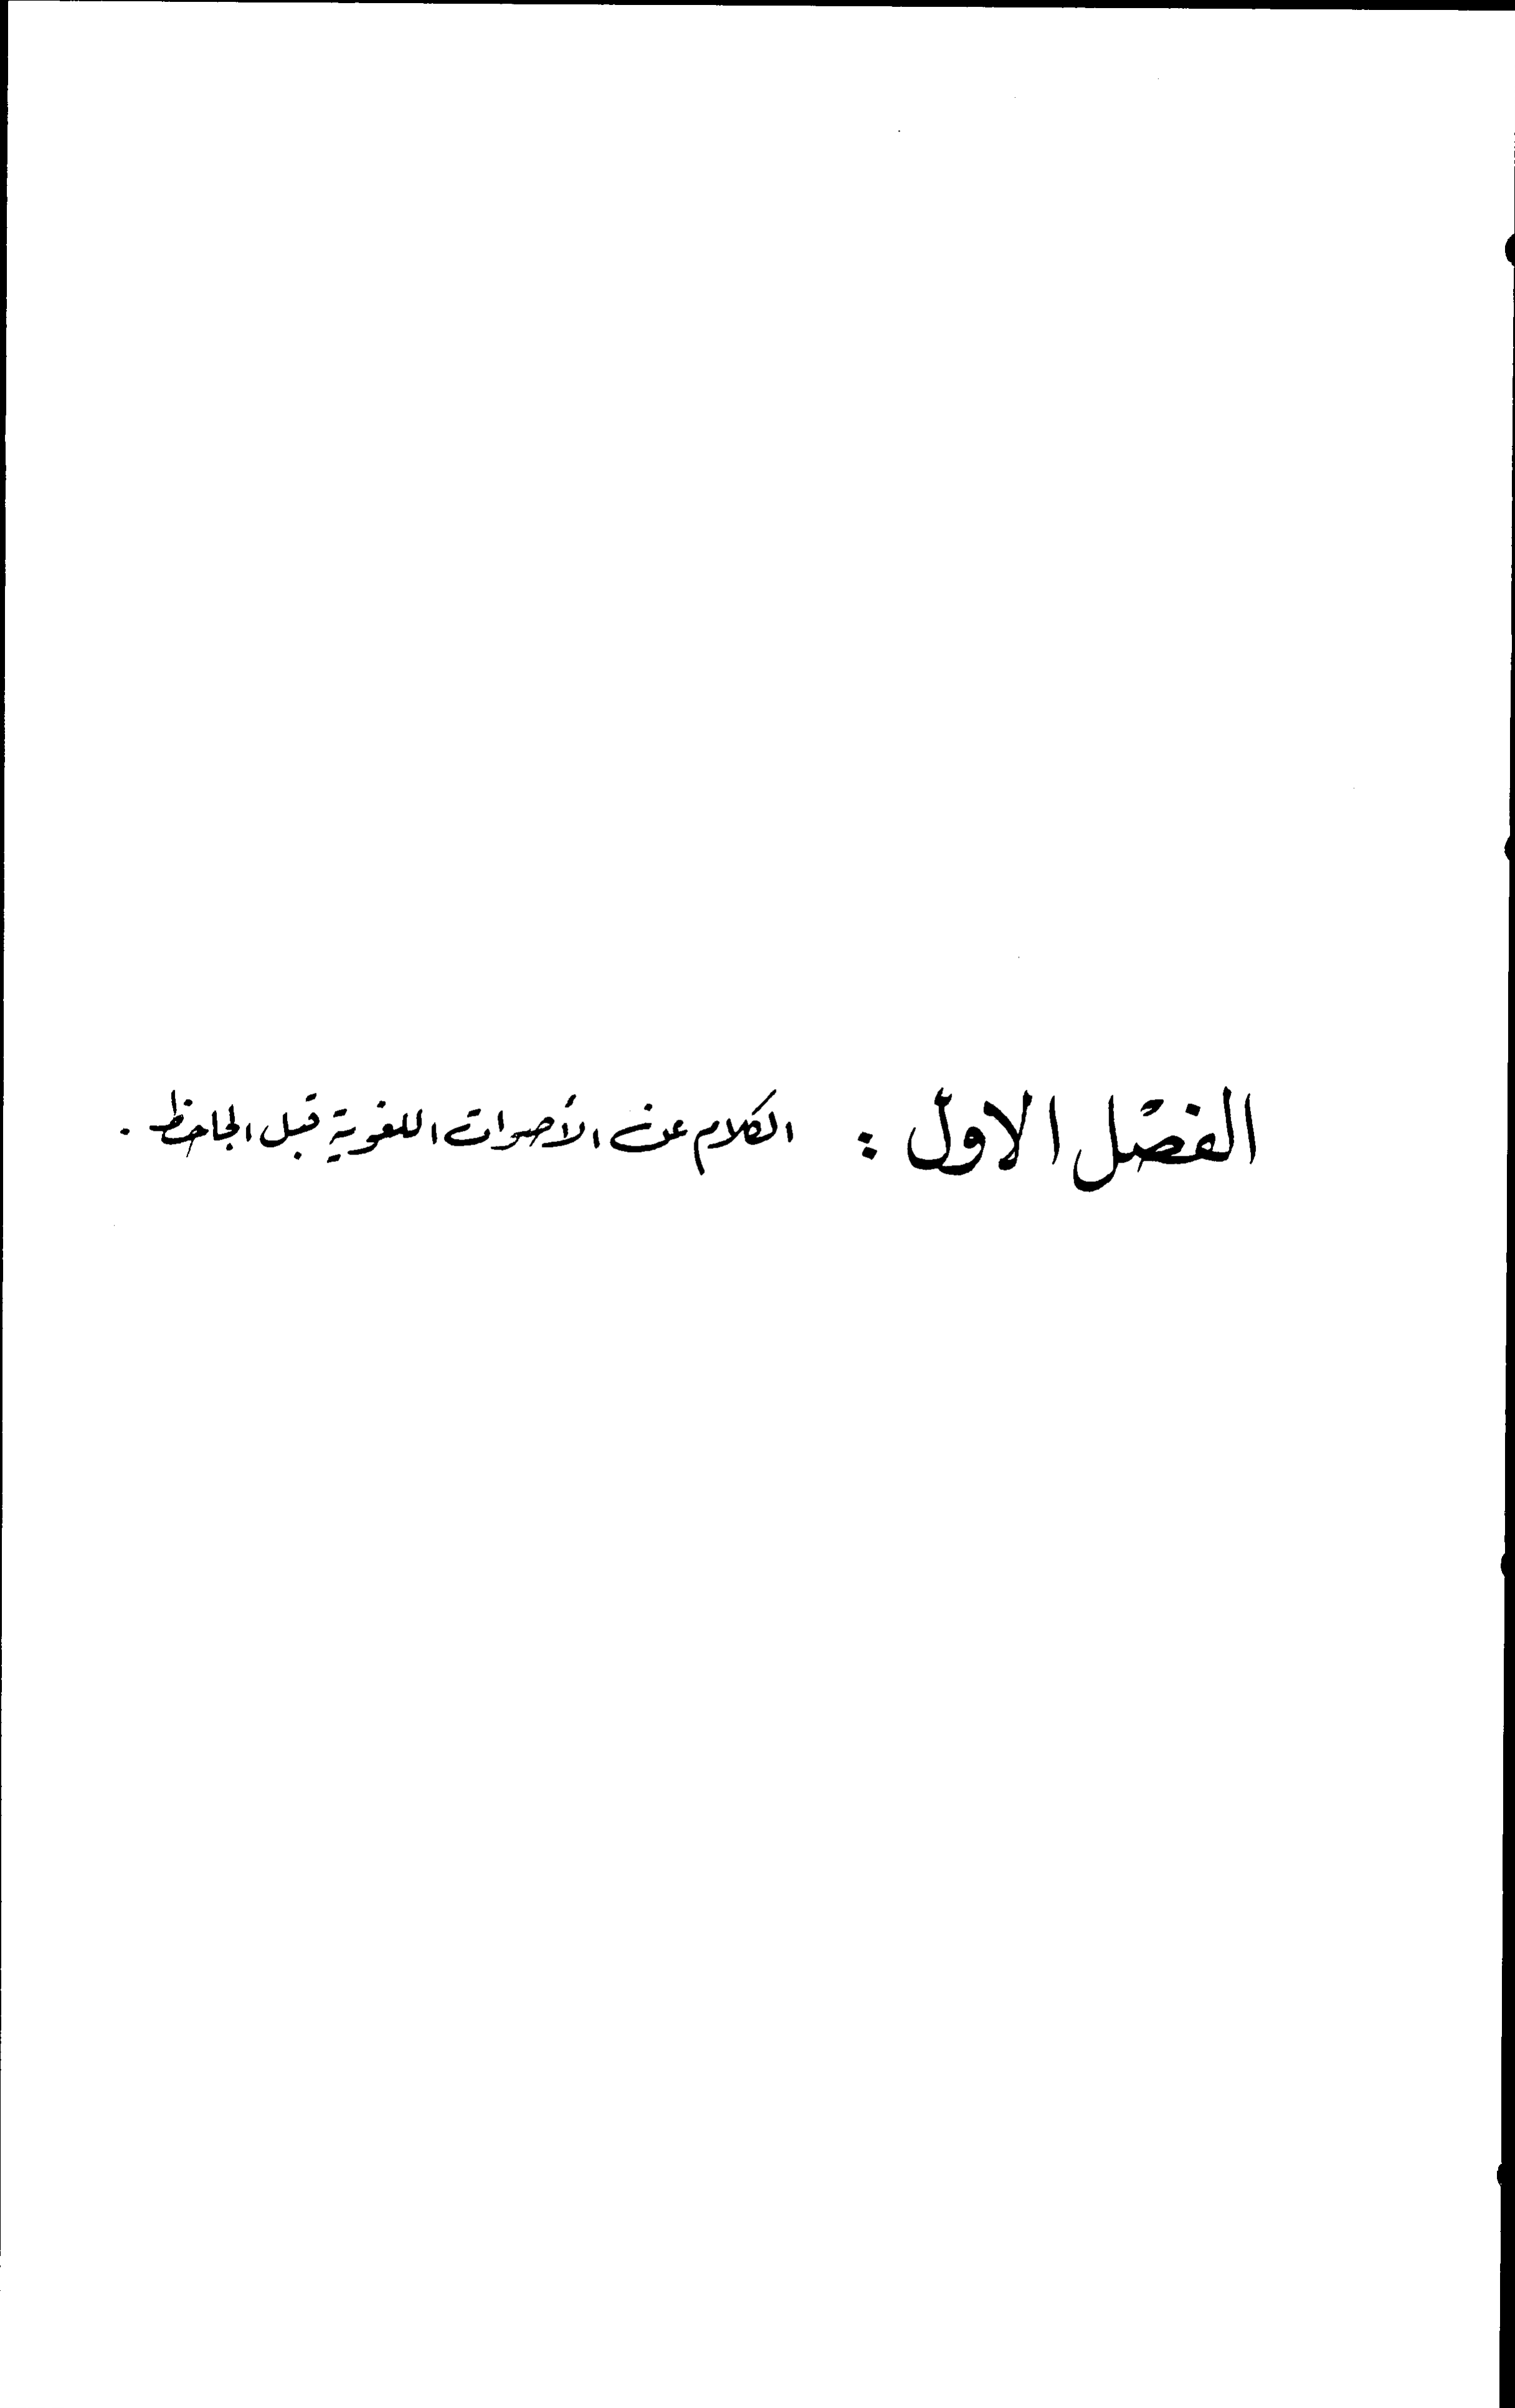 الفصل الاول : الكلام عن الأصوات اللغوية قبل الجاحظ .